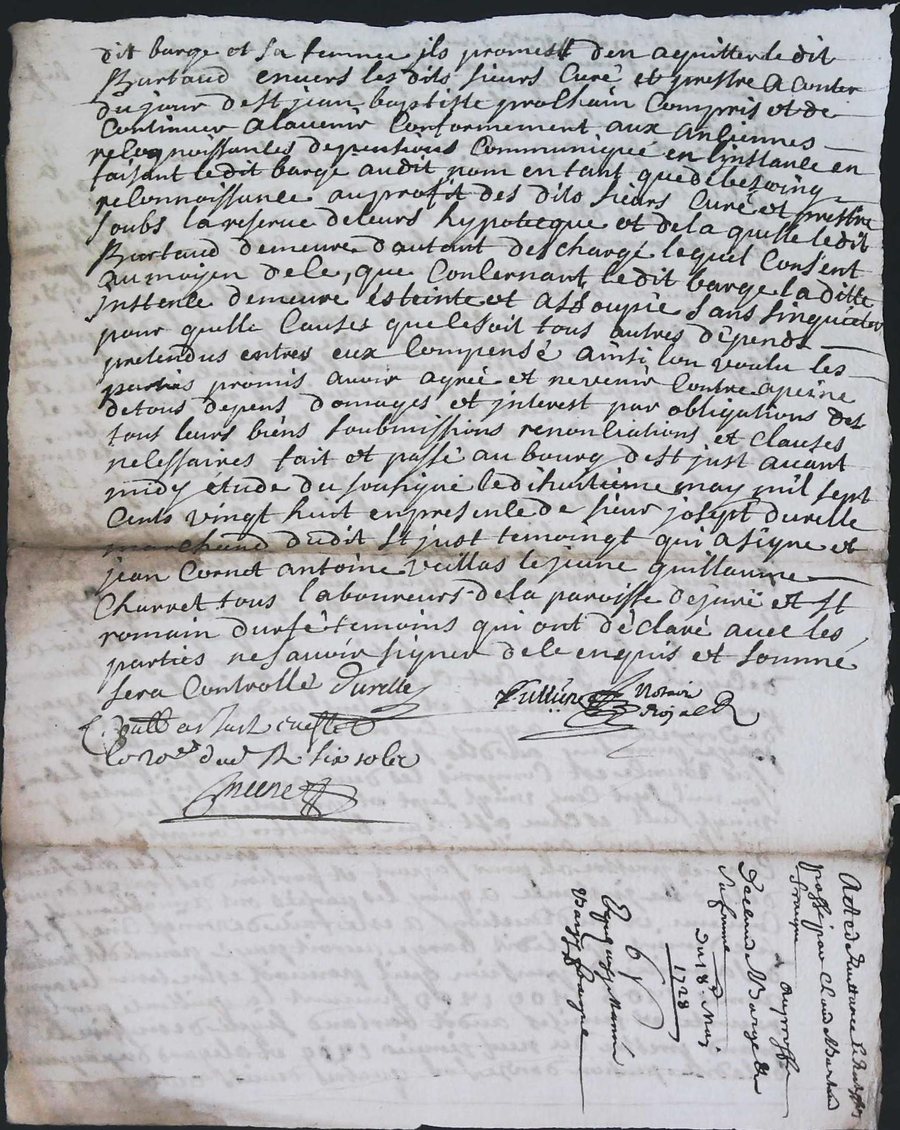 dit barge et sa femme ils promest den aquitter le dit
Burtaud envers les dits sieurs Curé et prestre a conter
du jour de st jean baptiste prochain Compris et de
Continuer a lavenir Conformement aux anciennes
recognoissantes de pensions Communiqué en linstance en
faisant le dit barge audit nom en tant que de besoing
reconnoissance au profit des dits sieurs Curé et prestre
soubs la reserve de leurs hypoteque et de la quelle le dit
Burtaud demeure dautant deschargé lequel Consent
au moyen de ce, que Concernant le dit barge la ditte
Instence demeure esteinte et assoupie sans singuieter
pour quelle Causes que ce soit tous autres dépends
pretendus entres eux Compensé ainsi lon voulu les
parties promis avoir agréé et ne venir Contre a peine
de tous depens domages et interest par obligations des
tous leurs biens soubmissions renonciations et clauses
necessaires fait et passé au bourg de st just avant
midy etude du soungné le dihuitieme may mil sept
Cents vingt huit en presence de sieur josept durelle
marchand dudit st just temoingt qui a signe et
jean Cornet antoine le jeune guillaume
Charret tous laboureurs de la paroisse de juré et st
romain durfé temoins qui ont déclaré avec les
parties ne savoir signer de ce enquis et sommé
sera Controllé durelle
Notaire
Royal
six
Acte de quittance
passé par Claude Burtaud
au proffit
de Claude Barge et
sa femme
du 18e Mai
1728